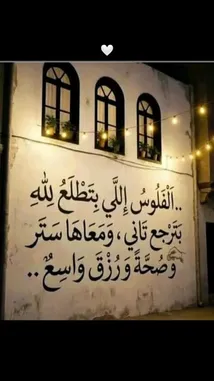 ..اَلْفُلُوسُ اِللَّي بِتَطْلَعُ لِلهِ
بَتَرجع تَاني ، وَمَعَاهَا سَتَر
وَصُحَّةً وَرُزْقَ وَاسِعٌ ..